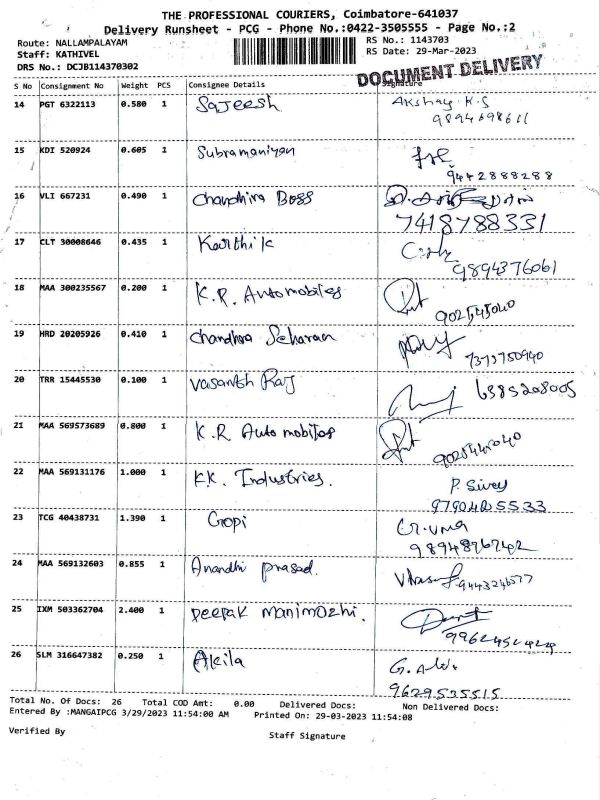 THE PROFESSIONAL COURIERS, Coimbatore-641037
Delivery Runsheet - PCG - Phone No.:0422-3505555 - Page No.:2
Route: NALLAMPALAYAM RS No.: 1143703
Staff: KATHIVEL RS Date: 29-Mar-2023
DRS No.: DCJB114370302
DOCUMENT DELIVERY
S No Consignment No Weight PCS Consignee Details Signature
14 PGT 6322113 0.580 1 Sajeesh Akshay K.S
9894698611
15 KDI 520924 0.605 1 Subramaniyan
9442888288
16 VLI 667231 0.490 1 Chandhira Boss
7418788331
17 CLT 30008646 0.435 1 Karthik
9894376061
18 MAA 300235567 0.200 1 K.R. Automobiles
9025445040
19 HRD 20205926 0.410 1 Chandhra Seharan
7373750940
20 TRR 15445530 0.100 1 Vasanth Raj 6385208005
21 MAA 569573689 0.800 1 K.R Automobiles
9025445040
22 MAA 569131176 1.000 1 K.K. Industries. P. Siva
9790405533
23 TCG 40438731 1.390 1 Gopi G.Uma
9894896742
24 MAA 569132603 0.855 1 Anandhi prasad.
9443246577
25 IXM 503362704 2.400 1 Deepak Manimozhi.
26 SLM 316647382 0.250 1 Akila
9629535515
Total No. Of Docs: 26 Total COD Amt: 0.00 Delivered Docs: Non Delivered Docs:
Entered By :MANGAIPCG 3/29/2023 11:54:00 AM Printed On: 29-03-2023 11:54:08
Verified By Staff Signature